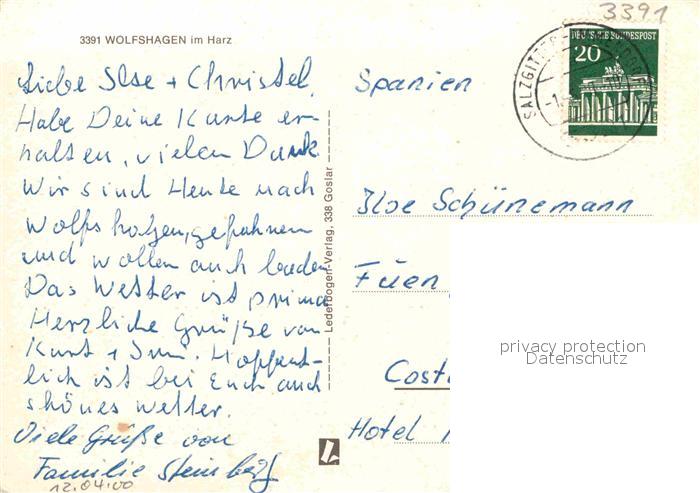 3391
3391 WOLFSHAGEN im Harz
DEUTSCHE BUNDESPOST
20
SALZGITTER
Liebe Ilse + Christel,
Habe Deine Karte er-
halten, vielen Dank
Wir sind Heute nach
Wolfshagen, gefahren
und wollen auch baden
Das Wetter ist prima
Herzliche Grüße von
Kurt + Immi. Hoffent-
lich ist bei Euch auch
shönes Wetter.
Viele Grüße von
Familie Steinberg
12.04.00
Lederbogen-Verlag, 338 Goslar
Spanien
Ilse Schünemann
Fuen
Costa
Hotel
privacy protection
Datenschutz